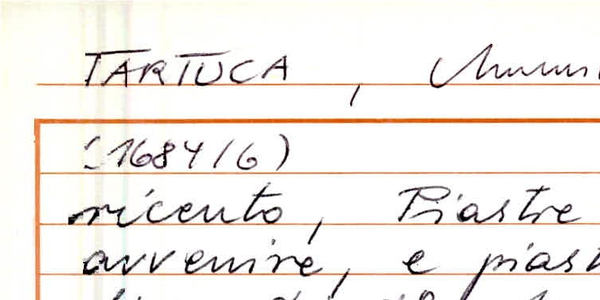 TARTUCA,
(1684/6)
ricento, Piastre
avvenire, e piast